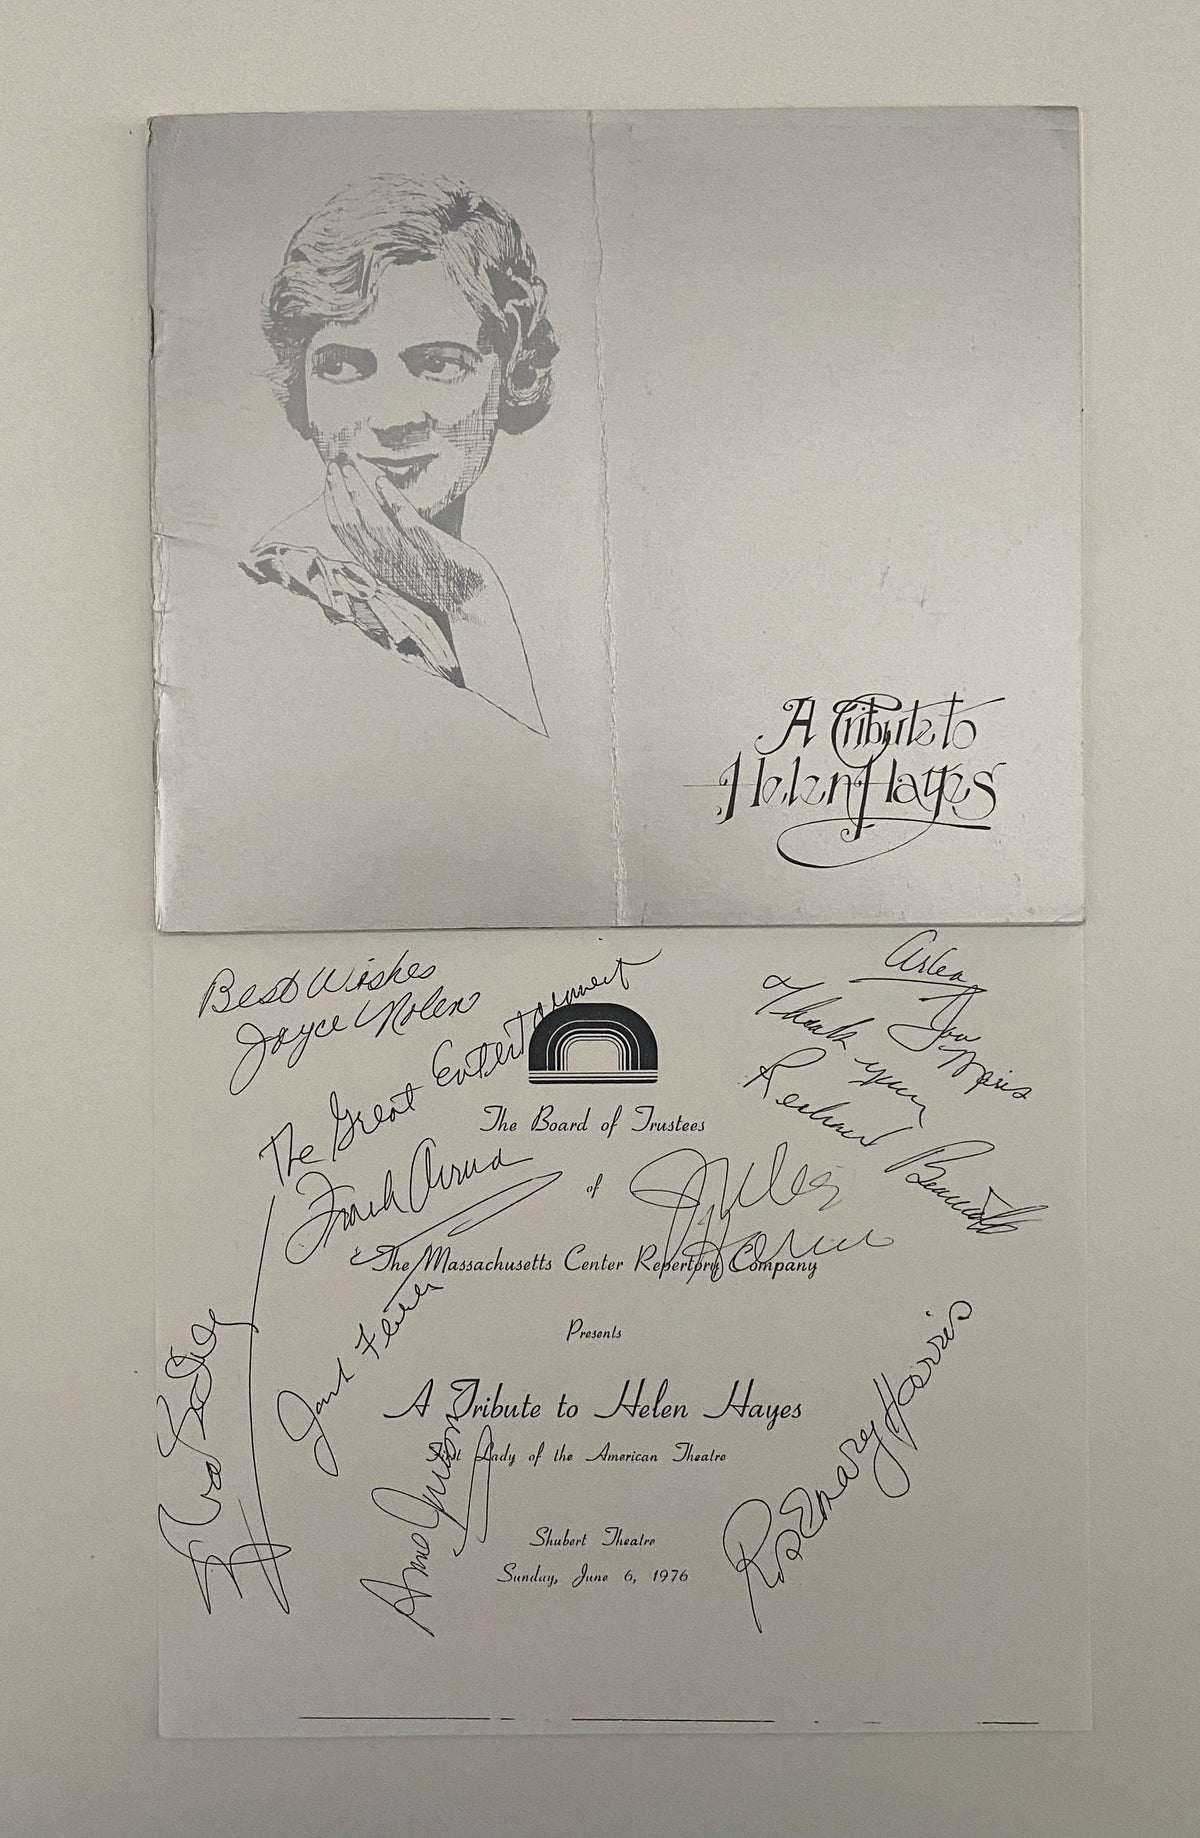 A Tribute to
Helen Hayes
Best Wishes
Joyce Nolen
The Great Entertainment
Frank
Thank you
Richard
Jules
The Board of Trustees
of
The Massachusetts Center Repertory Company
Presents
A Tribute to Helen Hayes
First Lady of the American Theatre
Shubert Theatre
Sunday, June 6, 1976
Rosemary Harris
Anne